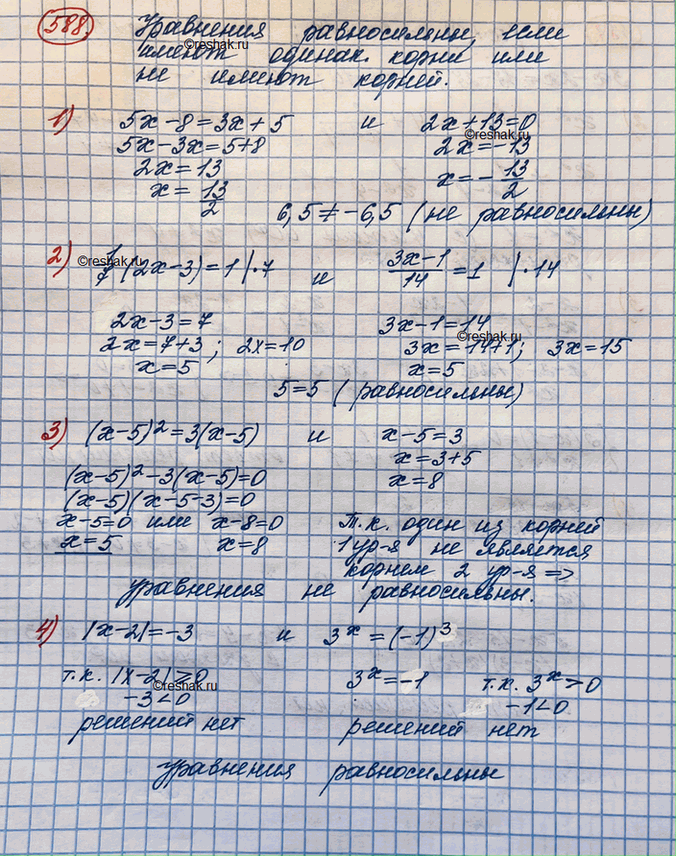 588.
Уравнения равносильны, если
имеют одинак. корни или
не имеют корней.
©reshak.ru
1) 5x-8=3x+5 и 2x+13=0
©reshak.ru
5x-3x=5+8 2x=-13
2x=13 x=-13/2
x=13/2
6,5≠-6,5 (не равносильны)
2) 1/7(2x-3)=1|·7 и (3x-1)/14=1 |·14
©reshak.ru
2x-3=7 3x-1=14
©reshak.ru
2x=7+3; 2x=10 3x=14+1; 3x=15
x=5 x=5
5=5 (равносильны)
3) (x-5)²=3(x-5) и x-5=3
x=3+5
(x-5)²-3(x-5)=0 x=8
(x-5)(x-5-3)=0
x-5=0 или x-8=0 Т.к. один из корней
x=5 x=8 1 ур-я не является
корнем 2 ур-я =>
уравнения не равносильны.
4) |x-2|=-3 и 3ˣ=(-1)³
т.к. |x-2|≥0 3ˣ=-1 т.к. 3ˣ>0
©reshak.ru
-3<0 -1<0
решений нет решений нет
уравнения равносильны